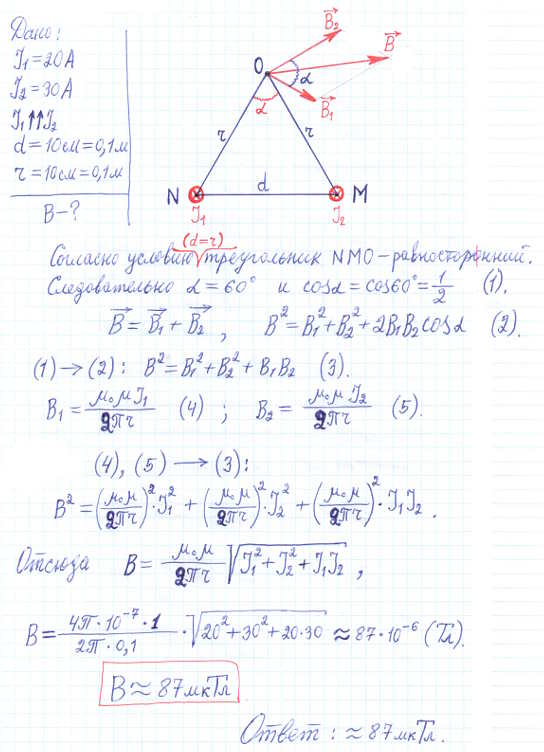 Дано:
J₁ = 20А
J₂ = 30А
J₁↑↑J₂
d = 10см = 0,1м
r = 10см = 0,1м
B – ?
B⃗₂
B⃗
O
α
B⃗₁
α
r
r
N
d
M
J₁
J₂
(d=r)
Согласно условию треугольник NMO – равносторонний.
Следовательно α = 60° и cosα = cos60° = 1/2 (1).
B⃗ = B⃗₁ + B⃗₂ , B² = B₁² + B₂² + 2B₁B₂cosα (2).
(1) → (2): B² = B₁² + B₂² + B₁B₂ (3).
B₁ = μ₀μJ₁/2πr (4) ; B₂ = μ₀μJ₂/2πr (5).
(4), (5) → (3):
B² = (μ₀μ/2πr)²·J₁² + (μ₀μ/2πr)²·J₂² + (μ₀μ/2πr)²·J₁J₂ .
Отсюда B = μ₀μ/2πr √(J₁² + J₂² + J₁J₂) ,
B = 4π·10⁻⁷·1/2π·0,1 · √(20² + 30² + 20·30) ≈ 87·10⁻⁶ (Тл).
B ≈ 87мкТл
Ответ: ≈ 87мкТл.